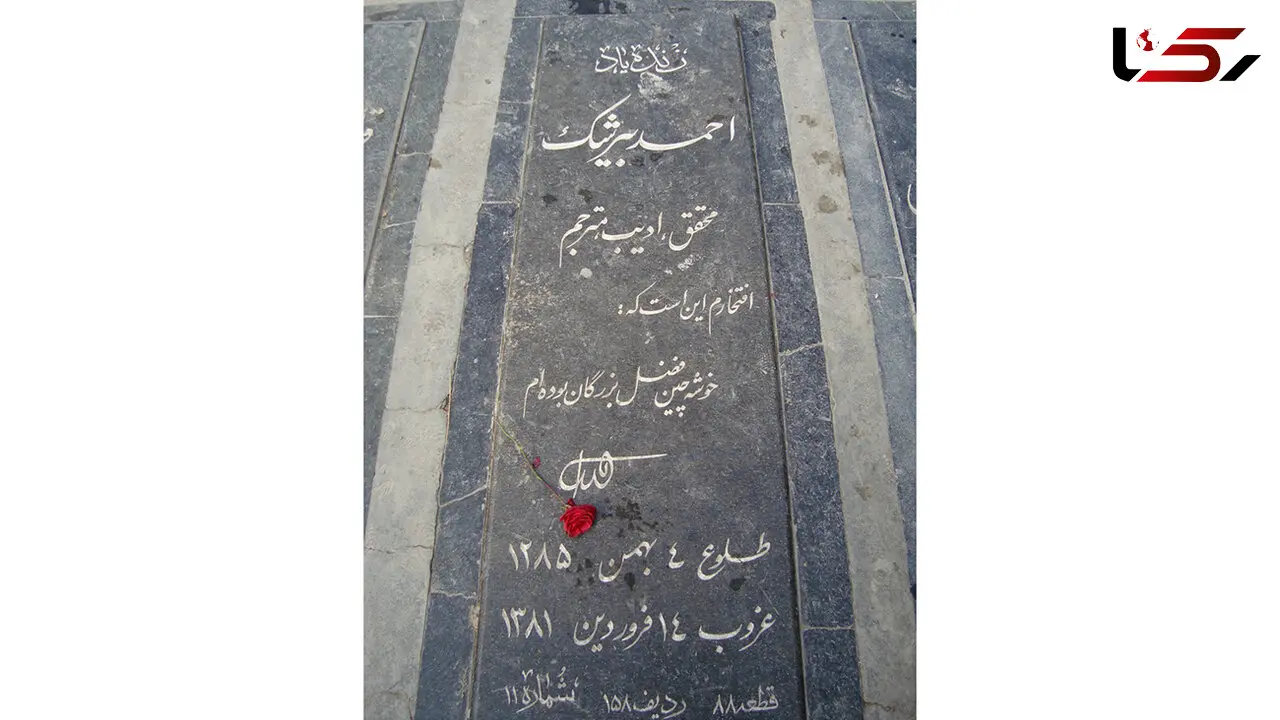 رکنا
زنده یاد
احمد بیرشک
محقق، ادیب، مترجم
افتخارم این است که:
خوشه چین فضل بزرگان بوده ام
طلوع ٤ بهمن ۱۲۸۵
غروب ١٤ فروردین ۱۳۸۱
قطعه ۸۸ ردیف ۱۵۸ شماره ۱۱